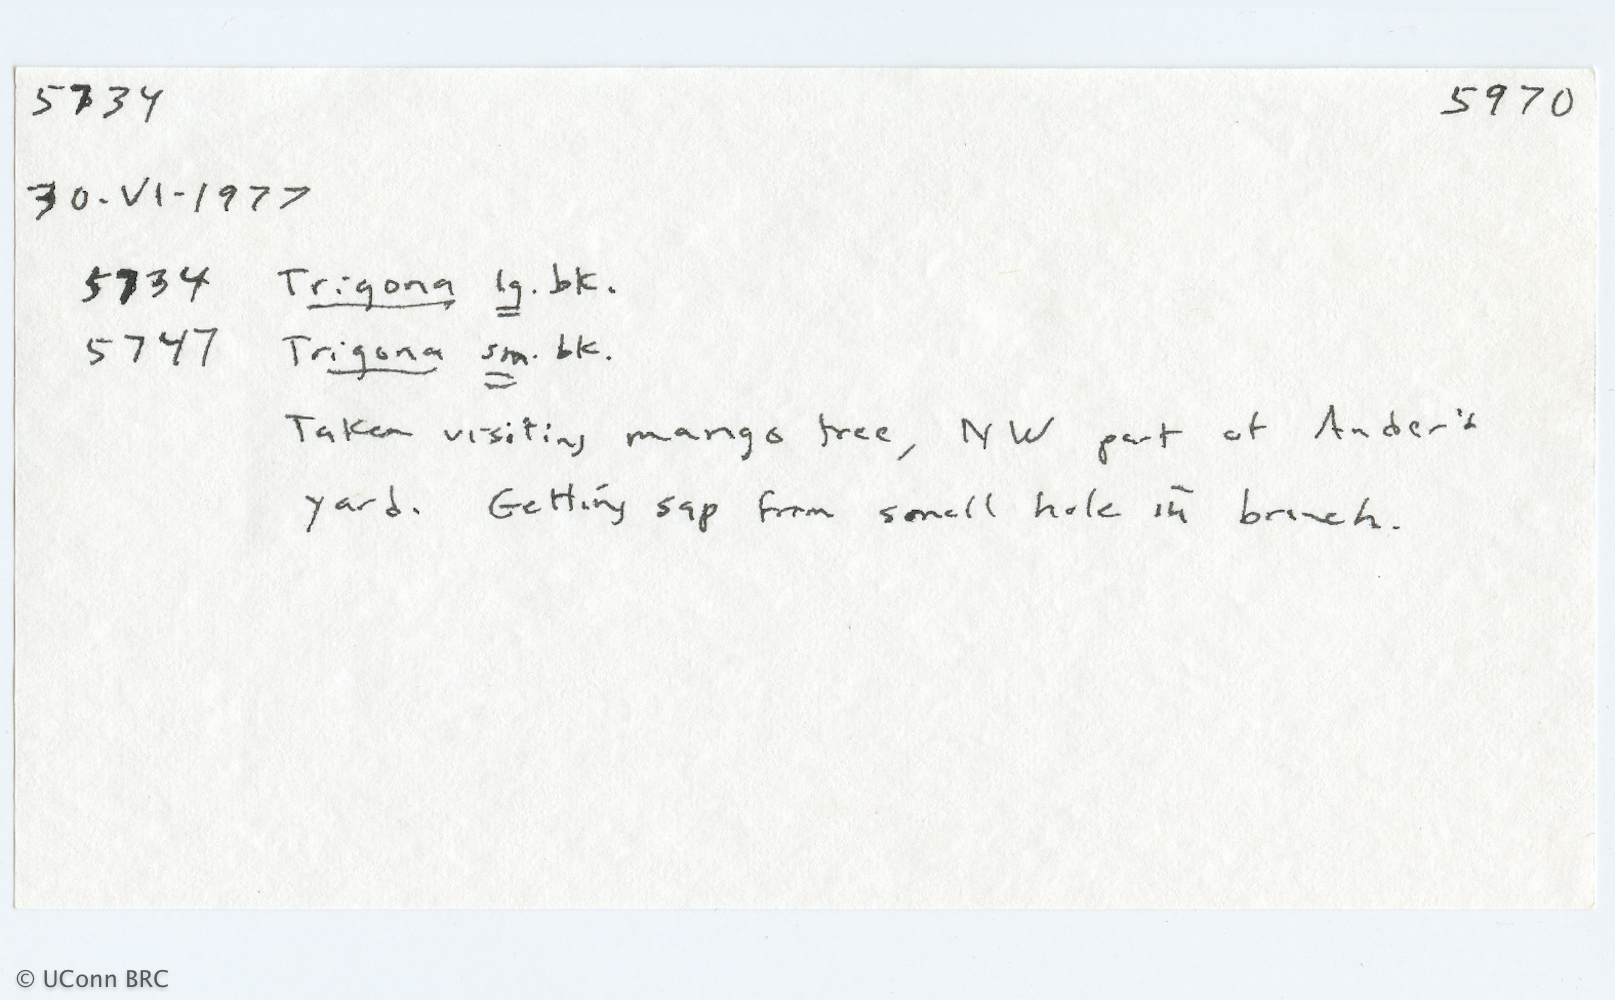 5734 5970
30-VI-1977
5734 Trigona lg. bk.
5747 Trigona sm. bk.
Taken visiting mango tree, NW part of Ander's
yard. Getting sap from small hole in branch.
© UConn BRC